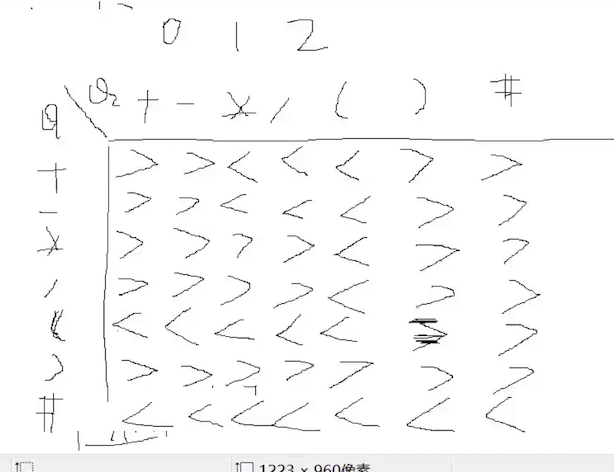 0 1 2
θ2 + - * / ( ) #
θ
+ > > < < < > >
- > > < < < > >
* > > > > < > >
/ > > > > < > >
( < < < < < = >
) > > > > > > >
# < < < < < < <
1223 × 960像素